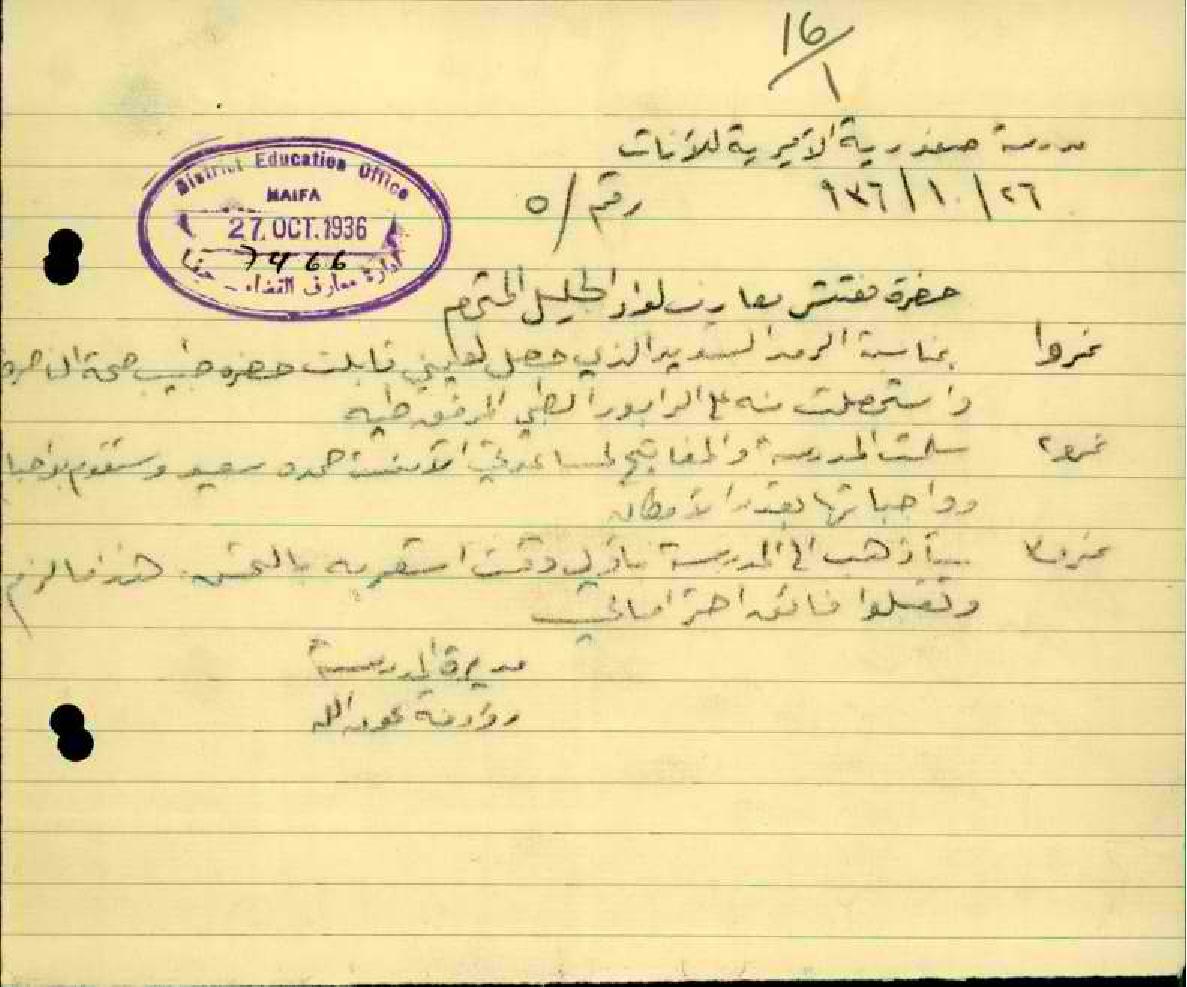 16/1
مدرسة صفورية الأميرية للأناث
٢٦/١٠/٩٣٦ رقم/٥
District Education Office
HAIFA
27. OCT. 1936
7466
ادارة معارف القضاء - حيفا
حضرة مفتش معارف لواء الجليل المحترم
نمرو١ بمناسبة الرمد الشديد الذي حصل لعيني قابلت حضرة طبيب صحة الناصرة
واستحصلت منه على الرابور الطبي المرفق طيه
نمرو٢ سلمت المدرسة والمفاتيح لمساعدتي الآنسة حمده سعيد وستقوم بواجبا
وواجباتها بقدر الأمكان
نمرو٣ سأذهب الى المدرسة بأول وقت استقر به بالتحسن. هذا ما لزم
وتفضلوا فائق احتراماتي
مديرة المدرسة
عبدالله